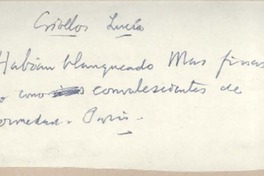 Criollos Lucía
Habían blanqueado Mas finas
o como convalescientes de
ermedad. París.